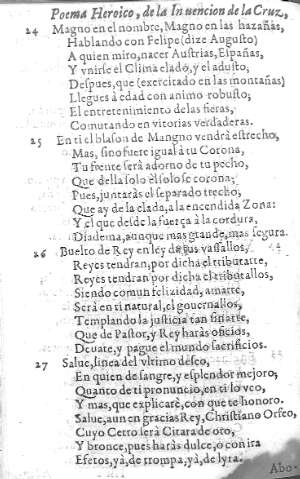 Poema Heroico, de la Inuencion de la Cruz,
24 Magno en el nombre, Magno en las hazañas,
Hablando con Felipe (dize Augusto)
A quien miro, nacer Austrias, Españas,
Y vnirse el Clima elado, y el adusto,
Despues, que (exercitado en las montañas)
Llegues à edad con animo robusto;
El entretenimiento de las fieras,
Comutando en vitorias verdaderas.
25 En ti el blason de Mangno vendrà estrecho,
Mas, sino fuere igual à tu Corona,
Tu frente serà adorno de tu pecho,
Que della solo el solo se corona;
Pues, juntaràs el separado trecho,
Que ay de la elada, a la encendida Zona:
Y el que desde la fuerça à la cordura,
Diadema, aunque mas grande, mas segura.
26 Buelto de Rey en ley de tus vassallos,
Reyes tendran, por dicha el tributarte,
Reyes tendran por dicha el tributallos,
Siendo comun felizidad, amarte,
Serà en ti natural, el gouernallos,
Templando la justicia tan sin arte,
Que de Pastor, y Rey haràs oficios,
Deuate, y pague el mundo sacrificios.
27 Salue, linea del vltimo deseo,
En quien de sangre, y esplendor mejoro,
Quanto de ti pronuncio, en ti lo veo,
Y mas, que explicarè, con que te honoro.
Salue, aun en gracias Rey, Christiano Orfeo,
Cuyo Cetro serà Citara de oro,
Y bronce, pues haràs dulce, o con ira
Efetos, yà, de trompa, yà, de lyra.
Abo-